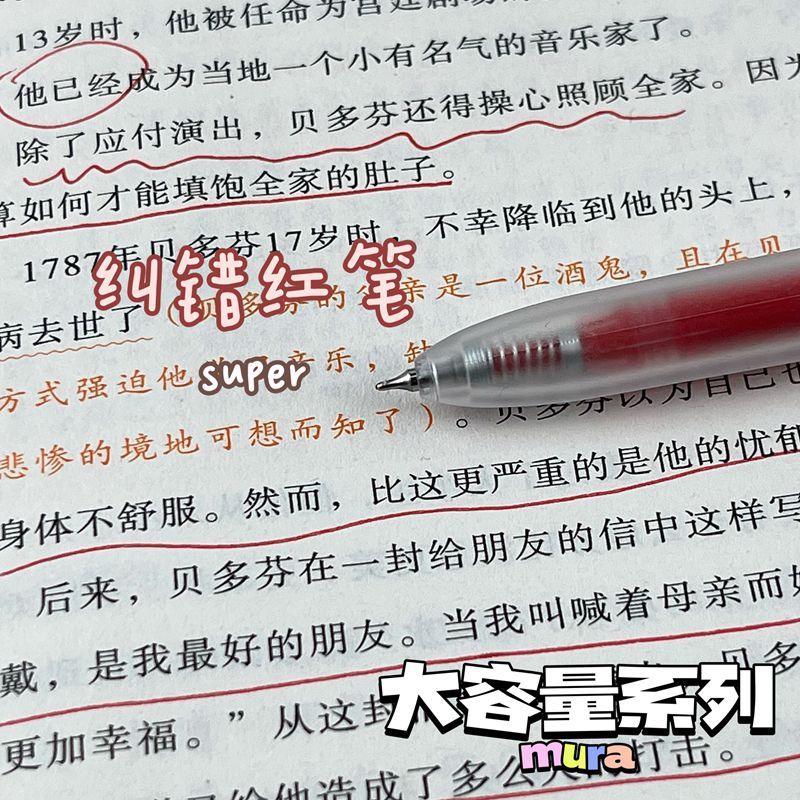 13岁时，他被任命为宫廷剧场
他已经成为当地一个小有名气的音乐家了。
除了应付演出，贝多芬还得操心照顾全家。因为
算如何才能填饱全家的肚子。
1787年贝多芬17岁时，不幸降临到他的头上，
纠错红笔
病去世了（贝多芬的父亲是一位酒鬼，且在贝
super
方式强迫他 音乐，缺
悲惨的境地可想而知了）。贝多芬以为自己也
身体不舒服。然而，比这更严重的是他的忧郁
后来，贝多芬在一封给朋友的信中这样写
戴，是我最好的朋友。当我叫喊着母亲而她
大容量系列
更加幸福。”从这封 贝多
mura
给他造成了多么大的打击。